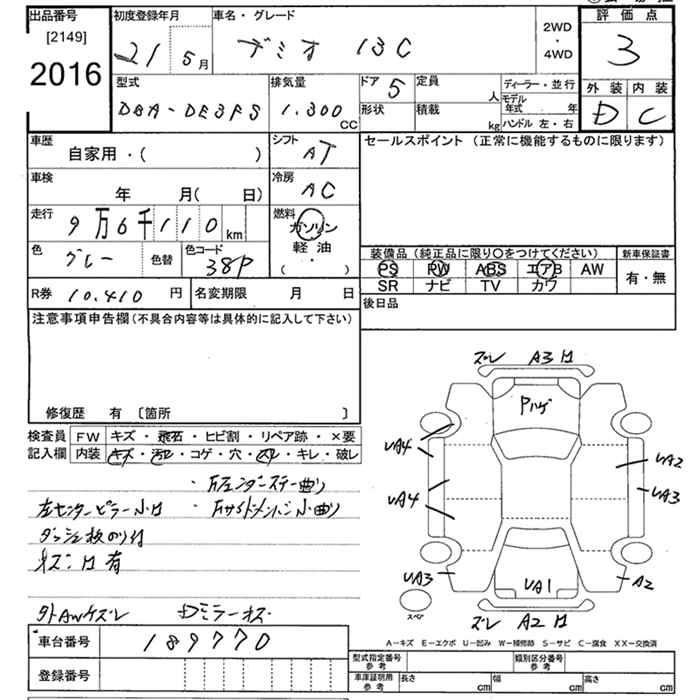 出品番号 初度登録年月 車名・グレード 評価点
[2149] 2WD
2016 21 5月 デミオ 13C ・ 3
4WD
型式 排気量 ドア 5 定員 人 ディーラー・並行 外装 内装
DBA-DE3FS 1.300 CC 形状 積載 kg モデル年式 年 D C
ハンドル 左・右
車歴 シフト セールスポイント (正常に機能するものに限ります)
自家用・( ) AT
車検 冷房
年 月( 日) AC
走行 燃料
9万6千110 km ガソリン
色 色替 色コード 軽油
グレー 38P ( ・ )
装備品 (純正品に限り○をつけてください) 新車保証書
PS PW ABS エアB AW 有・無
SR ナビ TV カワ
R券 10.410 円 名変期限 月 日 後日品
注意事項申告欄 (不具合内容等は具体的に記入して下さい)
修復歴 有 [箇所 ]
検査員 FW キズ・飛石・ヒビ割・リペア跡・×要
記入欄 内装 キズ・汚レ・コゲ・穴・スレ・キレ・破レ
・万エンダーステー曲り
左センターピラー小凹 ・万サイドメンバー小曲り
ダッシュ板のり付
ネズミ凹有
外AWケズレ Dミラーキズ
ズレ A3凹
Pハゲ
UA4 UA2
UA4 UA3
UA3 UA1 A2
スペア ズレ A2凹
A-キズ E-エクボ U-凹み W-補修跡 S-サビ C-腐食 XX-交換済
車台番号 189770
登録番号
型式指定番号 参考 類別区分番号 参考
車庫証明用 参考 長さ cm 幅 cm 高さ cm